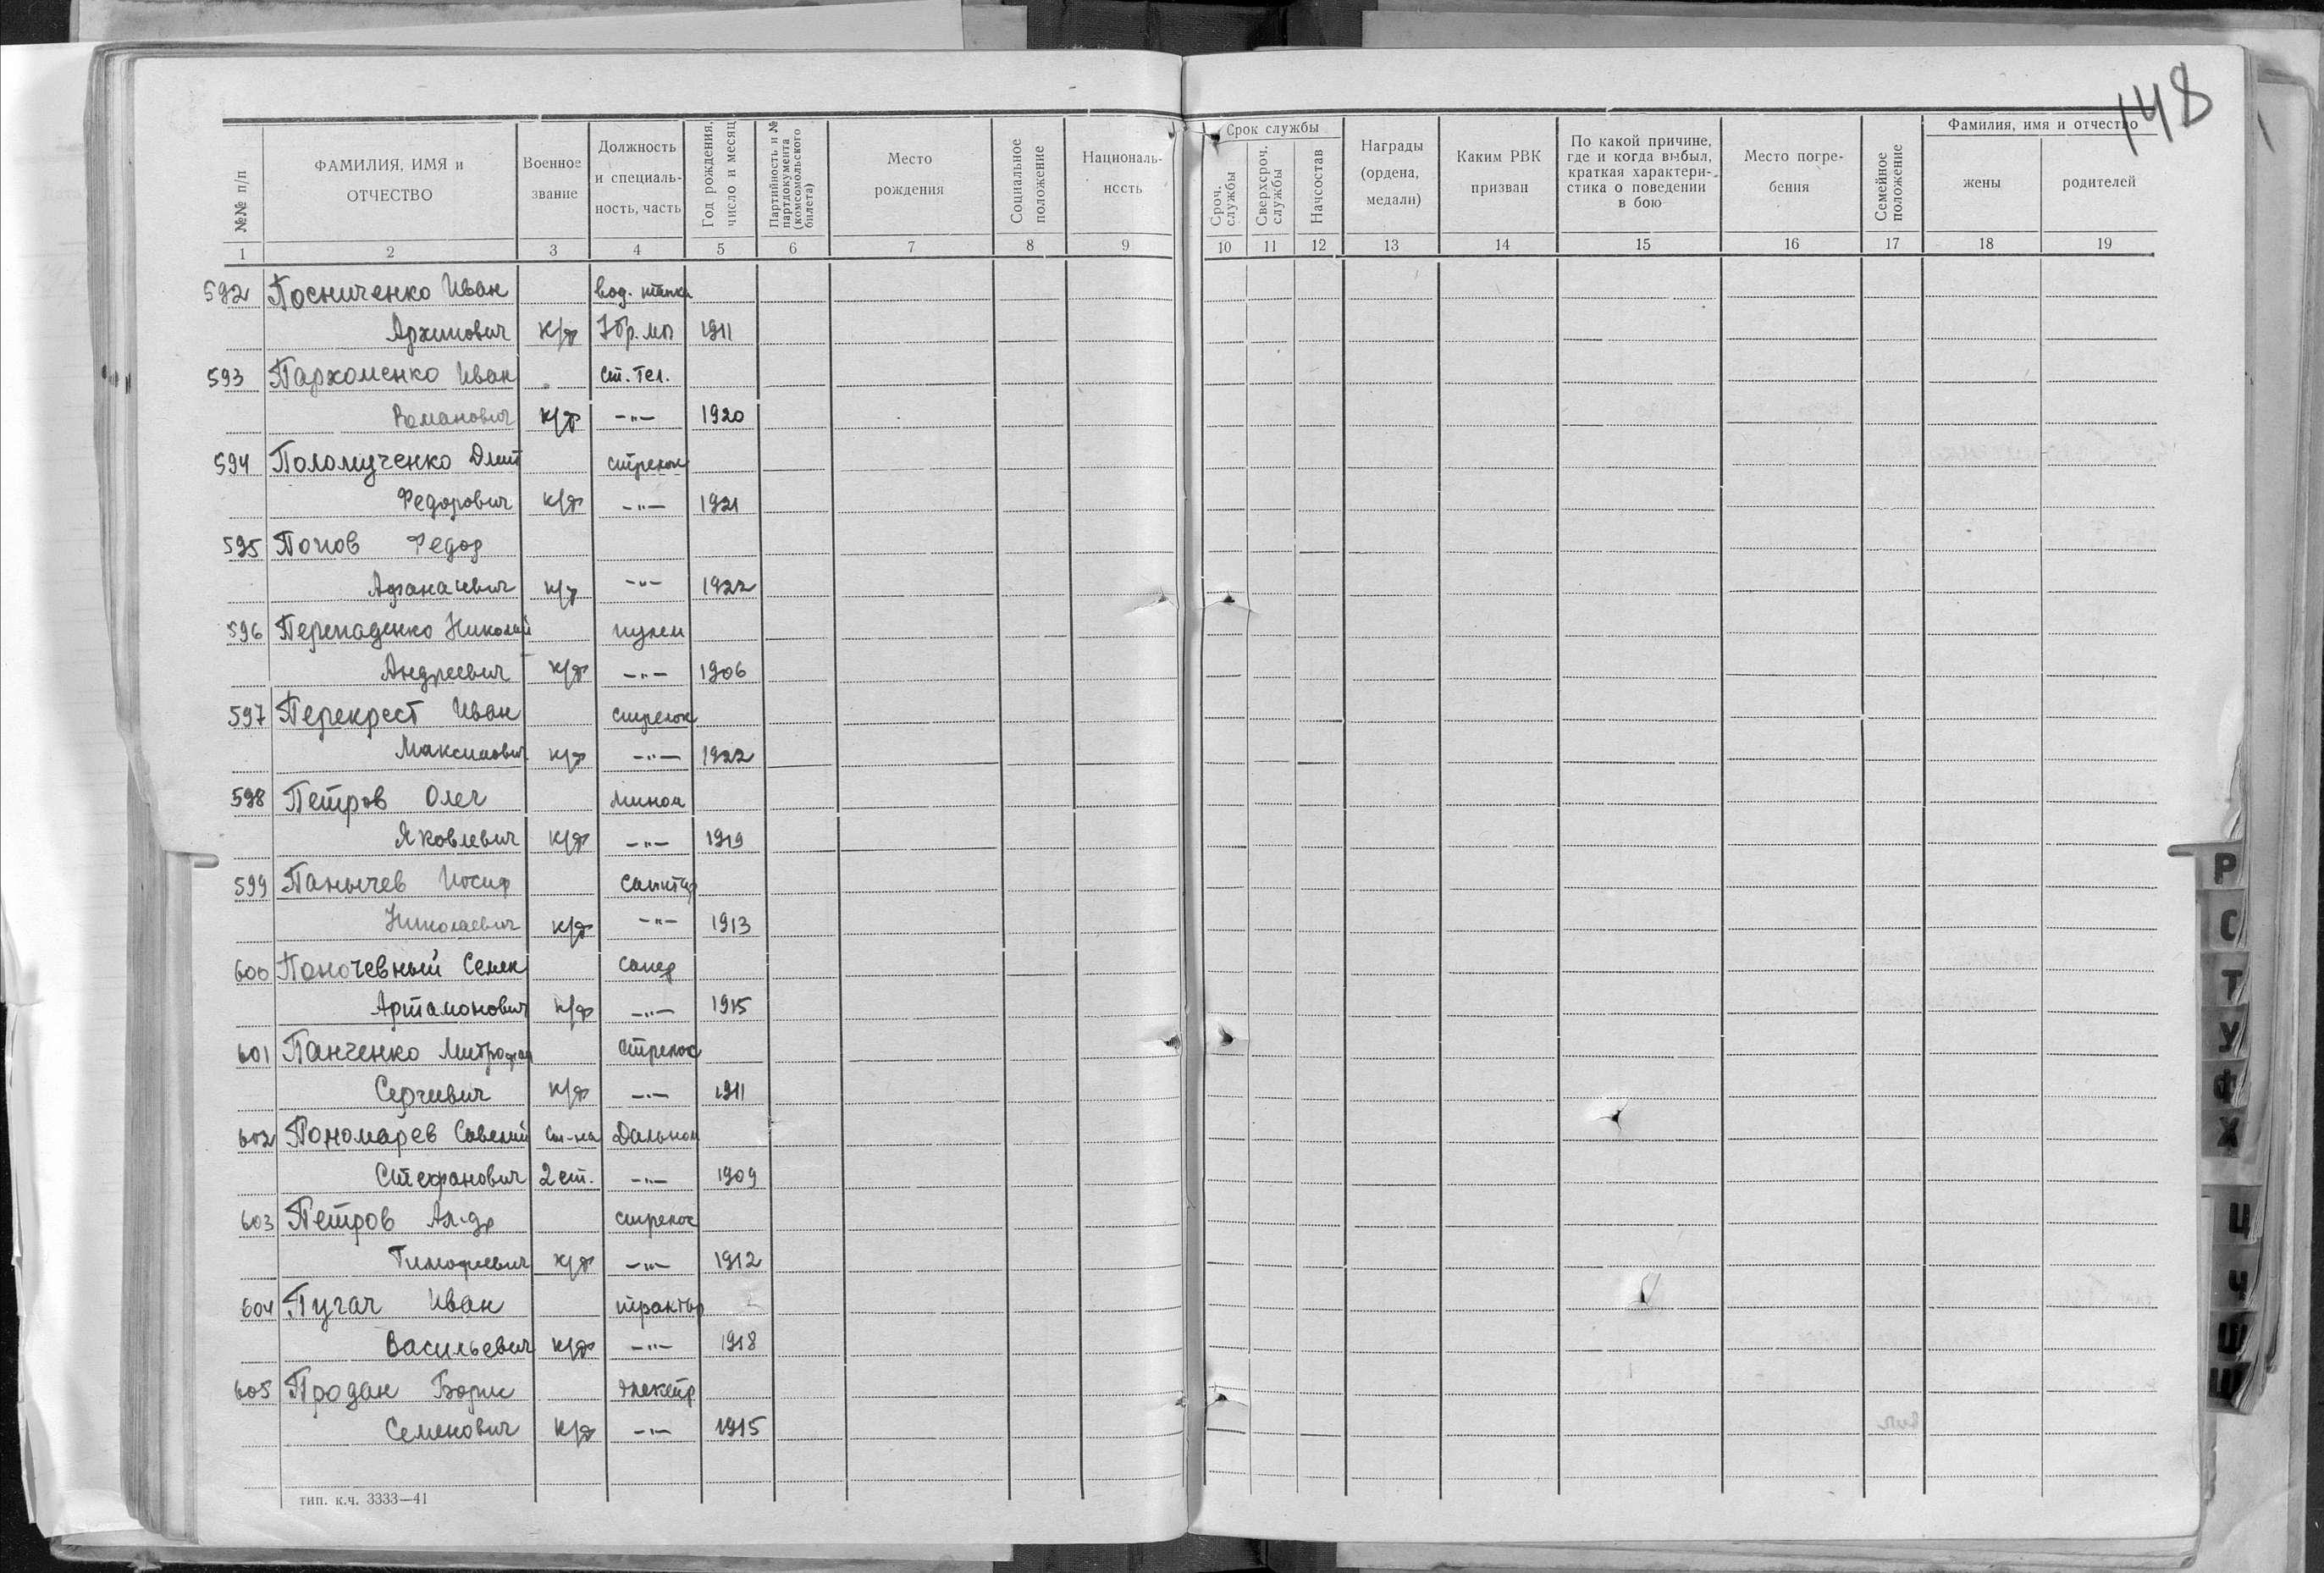 148
№№ п/п
ФАМИЛИЯ, ИМЯ и ОТЧЕСТВО
Военное звание
Должность и специальность, часть
Год рождения, число и месяц
Партийность и № партдокумента (комсомольского билета)
Место рождения
Социальное положение
Националь-ность
Срок службы
Сроч. службы
Сверхсроч. службы
Начсостав
Награды (ордена, медали)
Каким РВК призван
По какой причине, где и когда выбыл, краткая характери-стика о поведении в бою
Место погре-бения
Семейное положение
Фамилия, имя и отчество
жены
родителей
1 2 3 4 5 6 7 8 9 10 11 12 13 14 15 16 17 18 19
592 Посниченко Иван вод. танка
Архипович к/ф 7бр. мп 1911
593 Пархоменко Иван ст. тел.
Романович к/ф -"- 1920
594 Поломученко Дмит стрелок
Федорович к/ф -"- 1921
595 Попов Федор
Афанасьевич к/ф -"- 1922
596 Перепаденко Николай пулем
Андреевич к/ф -"- 1906
597 Перекрест Иван стрелок
Максимович к/ф -"- 1922
598 Петров Олег мином
Яковлевич к/ф -"- 1919
599 Панычев Иосиф санитар
Николаевич к/ф -"- 1913
600 Паночевный Семен сапер
Артамонович к/ф -"- 1915
601 Панченко Митрофан стрелок
Сергеевич к/ф -"- 1911
602 Пономарев Савелий Ст-на Дальном
Стефанович 2 ст. -"- 1909
603 Петров Ал-др стрелок
Тимофеевич к/ф -"- 1912
604 Пугач Иван трактор
Васильевич к/ф -"- 1918
605 Продан Борис электр
Семенович к/ф -"- 1915
тип. к.ч. 3333—41
Р
С
Т
У
Ф
Х
Ц
Ч
Ш
Щ